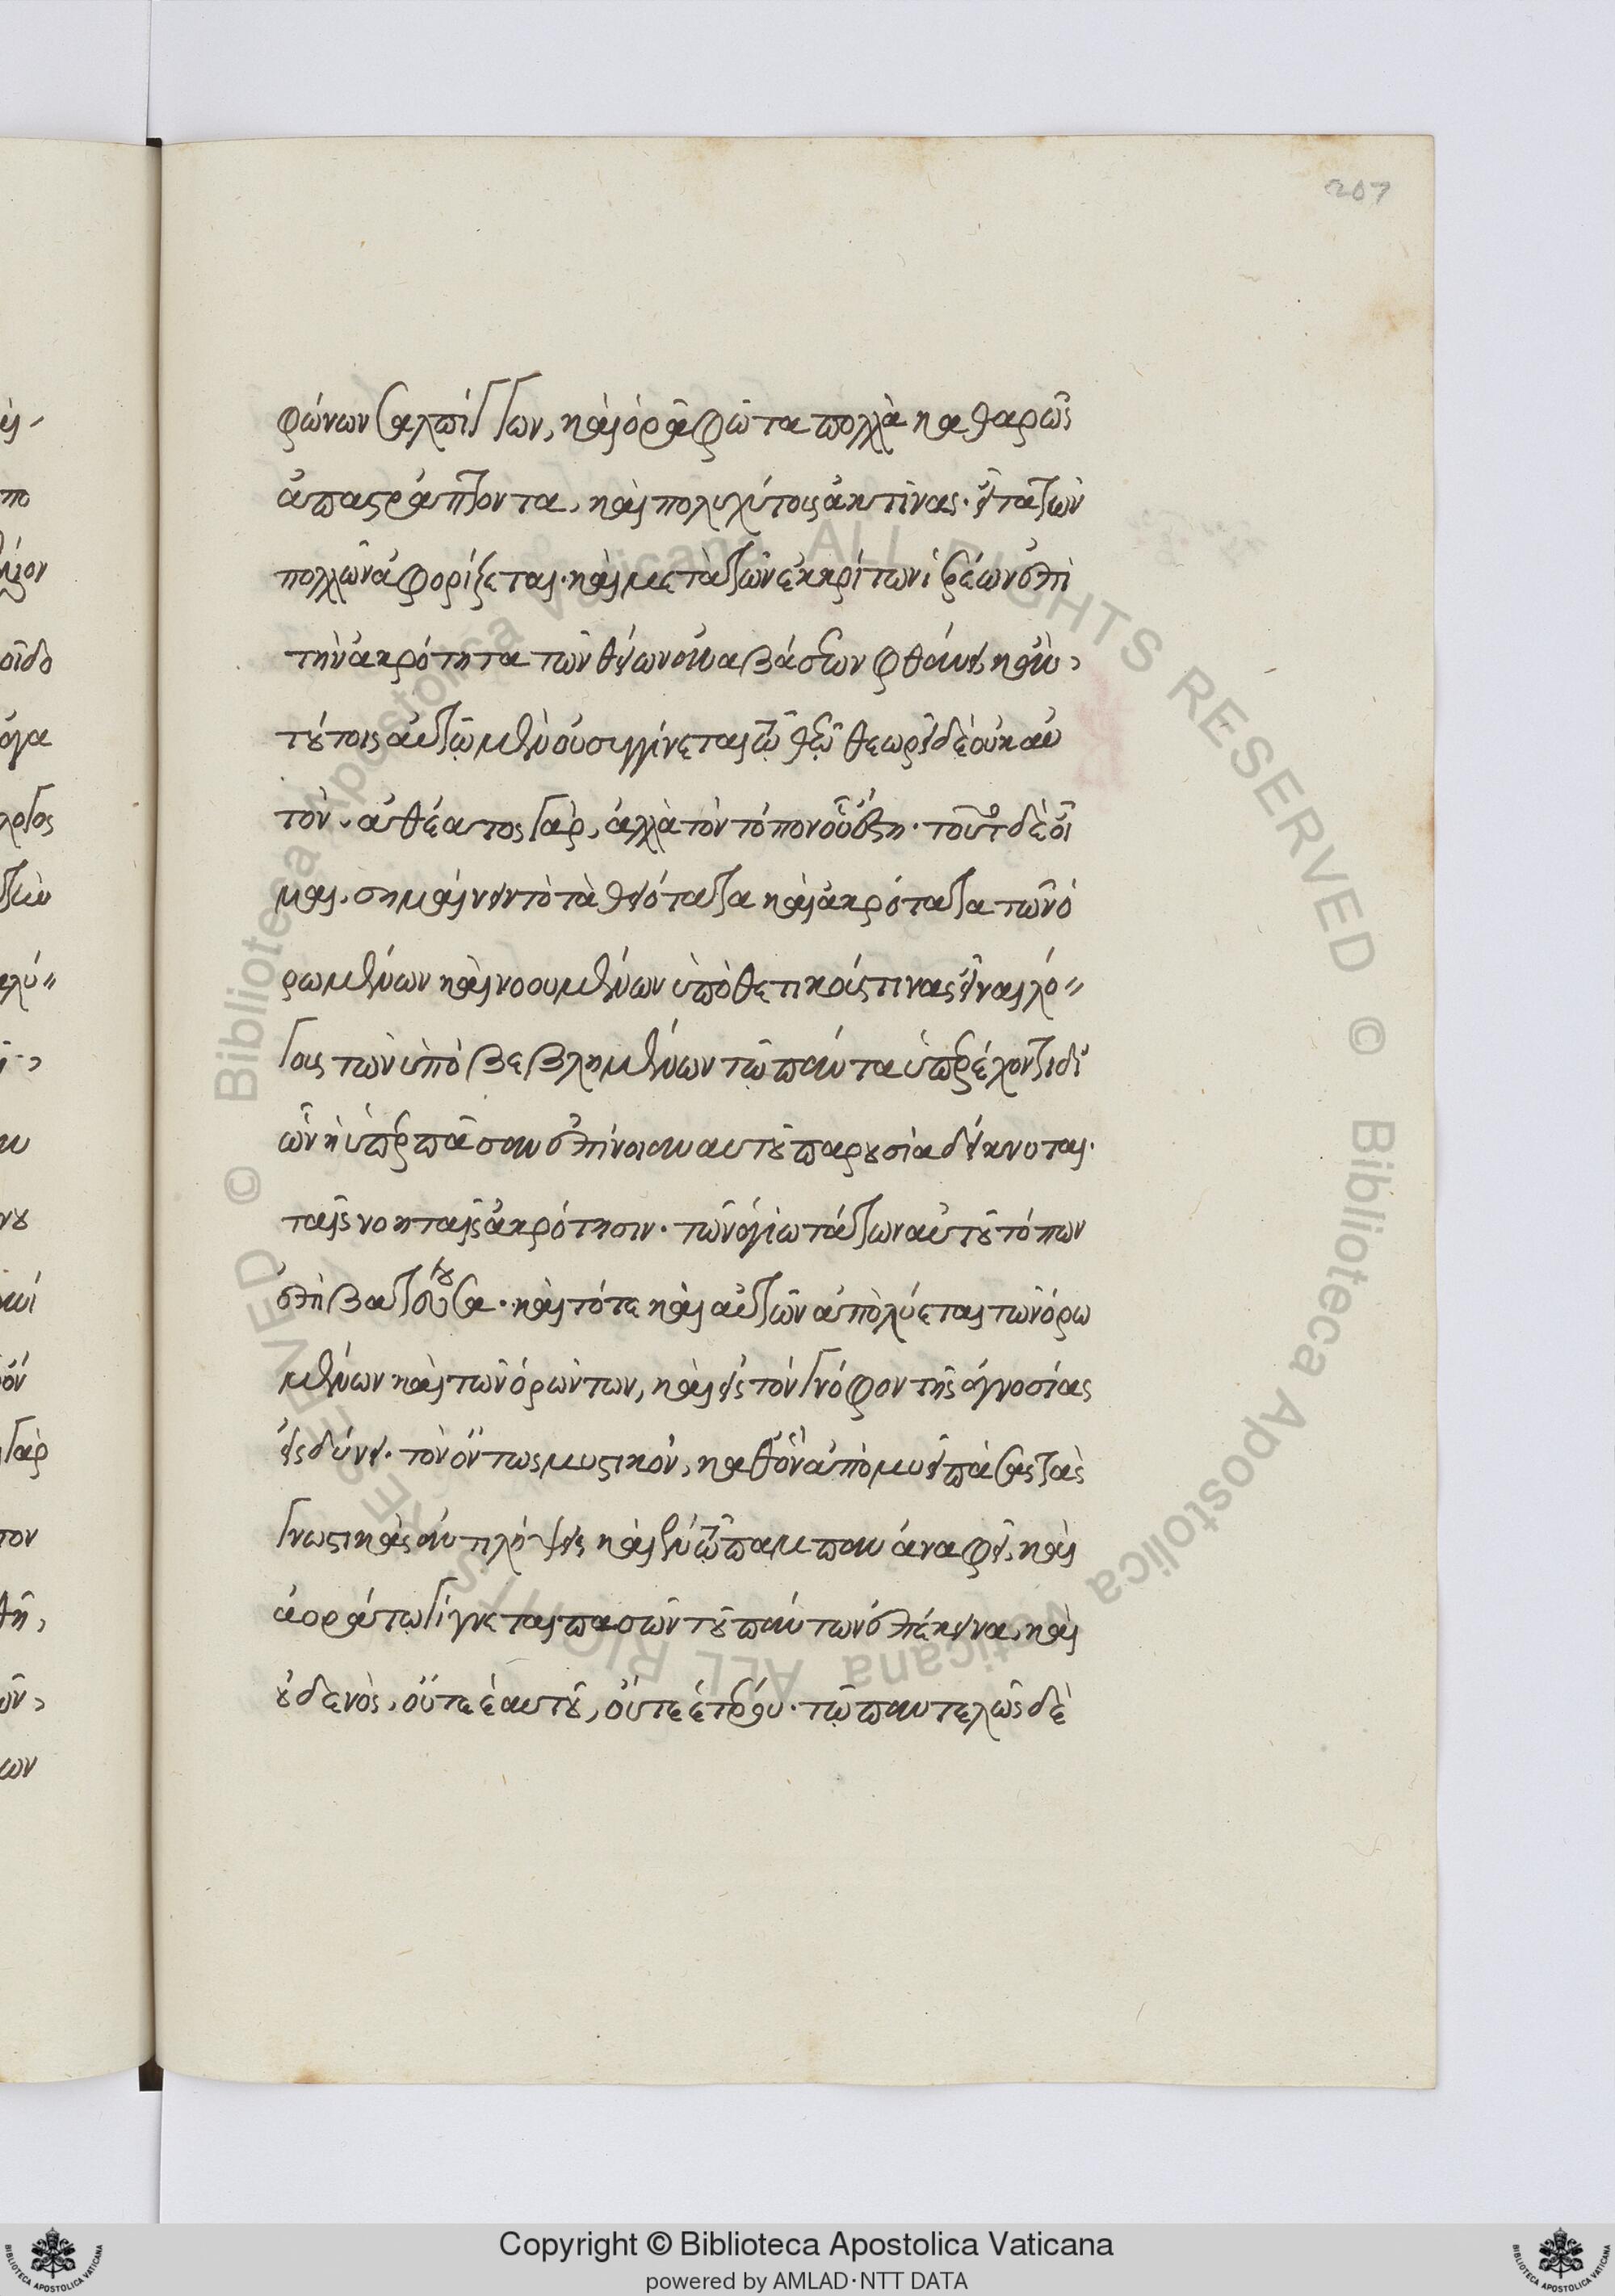 207
φώνων σαλπίγγων, καὶ ὁρᾷ φῶτα πολλὰ καθαρῶς
ἀπαστράπτοντα, καὶ πολυχύτοις ἀκτῖνας· εἶτα τῶν
πολλῶν ἀφορίζεται· καὶ μετὰ τῶν ἐκκρίτων ἱερέων ἐπὶ
τὴν ἀκρότητα τῶν θείων ἀναβάσεων φθάνει, κἀν,
τούτοις αὐτῷ μὲν οὐ συγγίνεται τῷ θεῷ θεωρεῖ δὲ οὐκ αὐ
τὸν, ἀθέατος γὰρ, ἀλλὰ τὸν τόπον οὗ ἔστη· τοῦτο δὲ οἶ
μαι, σημαίνειν τὸ τὰ θειότατα καὶ ἀκρότατα τῶν ὁ
ρωμένων καὶ νοουμένων ὑποθετικούς τινας εἶναι λό〃
γοις τῶν ὑποβεβλημένων τῷ πάντα ὑπερέχοντι δι'
ὧν ἡ ὑπὲρ πᾶσαν ἐπίνοιαν αυτοῦ παρουσία δείκνυται·
ταῖς νοηταῖς ἀκρότησιν· τῶν ἁγιωτάτων αὐτοῦ τόπων
ἐπιβατεύουσα· καὶ τότε καὶ αὐτῶν ἀπολύεται τῶν ὁρω
μένων καὶ τῶν ὁρώντων, καὶ εἰς τὸν γνόφον τῆς ἀγνοσίας
εἰσδύνει· τὸν ὄντως μυστικόν, καθ' ὃν ἀπομυεῖ πάσας τὰς
γνωστικὰς ἀντιλήψεις καὶ ἐν τῷ πάμπαν ἀναφεῖ, καὶ
ἀοράτῳ γίγνεται πᾶς ὢν τοῦ πάντων ἐπέκεινα, καὶ
οὐδενὸς, οὔτε ἑαυτοῦ, οὔτε ἑτέρου· τῷ παντελῶς δὲ
© Biblioteca Apostolica Vaticana ALL RIGHTS RESERVED © Biblioteca Apostolica Vaticana ALL RIGHTS RESERVED
Copyright © Biblioteca Apostolica Vaticana
powered by AMLAD·NTT DATA
BIBLIOTECA APOSTOLICA VATICANA
BIBLIOTECA APOSTOLICA VATICANA